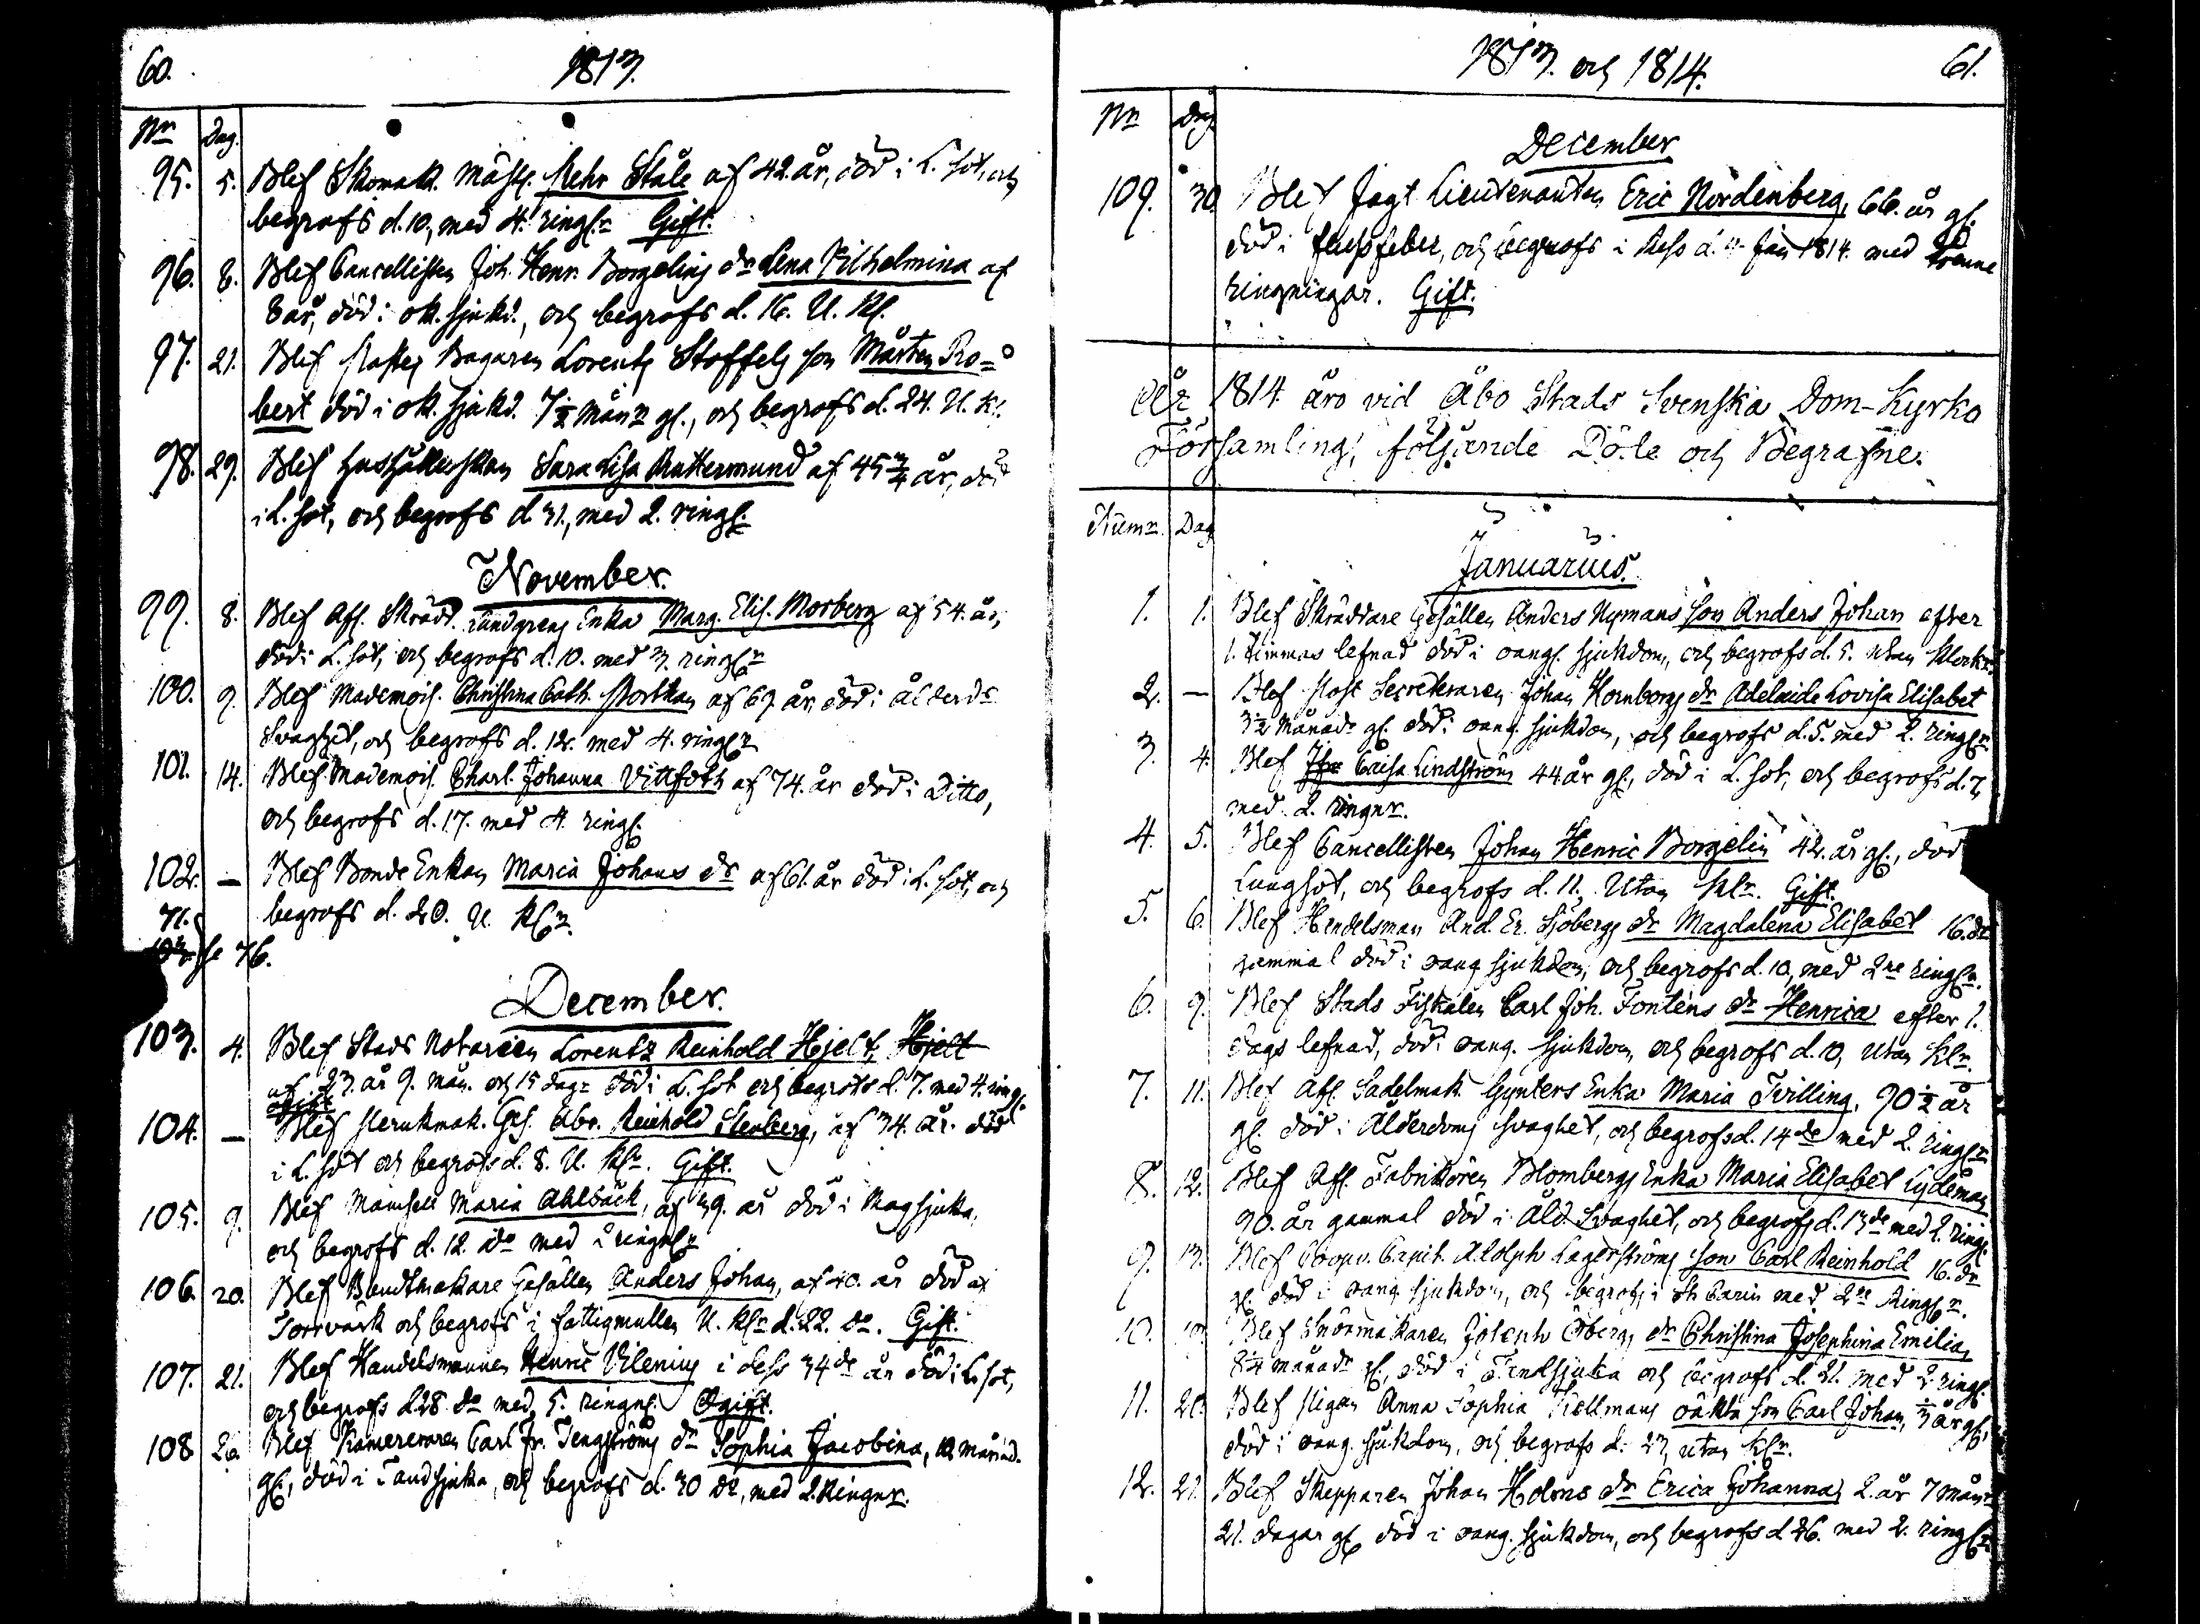 60.
1813.
Nr Dag.
95. 5. Blef Skomak. Mäst. Petr Ståle af 42 år, död i L. sot, och
begrofs d. 10, med 4. ringr Gift.
96. 8. Blef Cancellisten Joh. Henr. Borgelins dr Lena Vilhelmina af
8 år, död i ok. sjukd., och begrofs d. 16. U. Kl.
97. 21. Blef Bagaren Lorentz Stoffels son Mårten Ro-
bert död i ok. sjukd. 7½ månr gl., och begrofs d. 24. U. Kl.
98. 29. Blef Hushållerskan Sara Lisa af 45¾ år, död
i L. sot, och begrofs d. 31, med 2. ringr
November.
99. 8. Blef Afl. Skrädd. Lundgrens Enka Marg. Elis. Morberg af 54. år,
död i L. sot, och begrofs d. 10. med 3. ringr
100. 9. Blef Mademois. Christina Cath. Porthan af 69 år, död i Ålderds
Svaghet, och begrofs d. 12. med 4. ringr
101. 14. Blef Mademois. Charl. Johanna Vittfoth af 74. år död i Ditto,
och begrofs d. 17. med 4. ringr
102. — Blef Bonde Enkan Maria Johans dr af 61. år död i L. sot, och
begrofs d. 20. U. Klr
se 76.
December.
103. 4. Blef Stads Notarien Lorentz Reinhold Hjelt, Hjelt
af 23. år 9. mån. och 15 dagr död i L. sot och begrofs d. 7. med 4. ringr
104. — Blef Perukmak. Ges. Abr. Reinhold Stenberg, af 34. år. död
i L. sot och begrofs d. 8. U. Klr. Gift.
105. 9. Blef Mamsell Maria Ahlbäck, af 39. år död i Magsjuka,
och begrofs d. 12. do med 2 ringr
106. 20. Blef Bundtmakare Gesällen Anders Johan, af 40. år död af
Torrvärk och begrofs i fattigmullen U. Klr d. 22. do. Gift.
107. 21. Blef Handelsmannen Henric Vilenius i dess 34de år död i L. sot,
och begrofs d. 28 do med 5. ringnr. Ogift.
108 26. Blef Kamereraren Carl Fr. Tengströms dr Sophia Jacobina, 10 månad.
gl., död i Tandsjuka, och begrofs d. 30 do, med 2. Ringnr.
1813. och 1814.
61.
Nr Dag
December
109. 30. Blef Jagt Lieutenanten Eric Nordenberg, 66. år gl.
död i flussfeber, och begrofs i Reso d. Jan 1814. med trenne
ringningar. Gift.
År 1814 äro vid Åbo Stads Svenska Dom-Kyrko
Församling, följande Döde och Begrafne.
Numr Dag
Januarius.
1. 1. Blef Skräddare Gesällen Anders Nymans son Anders Johan efter
1. timmas lefnad död i oang. sjukdom, och begrofs d. 5. utan Klockr
2. — Blef Post Secreteraren Johan Hornborgs dr Adelaide Lovisa Elisabet
3½ Månadr gl. död i oang. sjukdom, och begrofs d. 5. med 2. ringr
3. 4. Blef Caisa Lindström 44 år gl., död i L. sot, och begrofs d. 7,
med 2. ringnr.
4. 5. Blef Cancellisten Johan Henric Borgelin 42. år gl., död
Lungsot, och begrofs d. 11, Utan Klr. Gift.
5. 6. Blef Hendelsman And. Er. Sjöbergs dr Magdalena Elisabet 16. dr
gammal död i oang sjukdom, och begrofs d. 10, med 2ne ringr.
6. 9. Blef Stads Fiskalen Carl Joh. Fonténs dr Henrica efter 1.
dags lefnad, död i oang. sjukdom, och begrofs d. 10, utan Klr.
7. 11. Blef Afl. Sadelmak. Gynters Enka Maria Tvilling, 90½ år
gl. död i Ålderdoms svaghet, och begrofs d. 14de med 2. ringr
8. 12. Blef Afl. Fabrikören Blombergs Enka Maria Elisabet Lydeman
90. år gammal död i Åld. Svaghet, och begrofs d. 13de med 2. ringr
9. 13. Blef Coopv. Capit. Adolph Lagerströms son Carl Reinhold 16. dr
gl. död i oang sjukdom, och begrofs i St Carin med 2ne Ringr.
10. 19. Blef Snörmakaren Joseph Öbergs dr Christina Josephina Emilia,
8¼ månadr gl., död i Tandsjuka och begrofs d. 21. med 2. ringr.
11. 20. Blef Pigan Anna Sophia Kjellmans oäkta son Carl Johan, ½ år gl.,
död i oang. sjukdom, och begrofs d. 23, utan Klr.
12. 21. Blef Skepparen Johan Holms dr Erica Johanna, 2. år 7 månr
21. dagar gl. död i oang. sjukdom, och begrofs d. 26. med 2. ringr